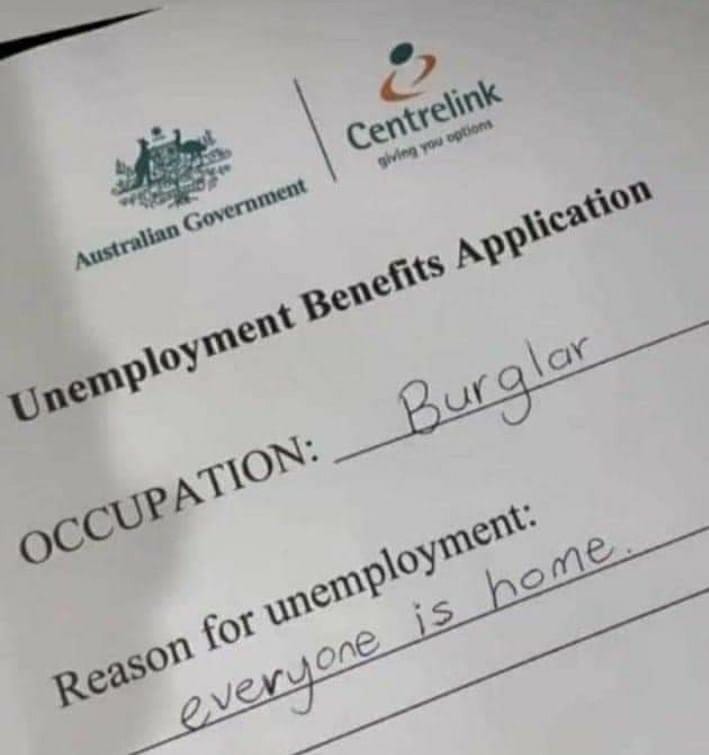 Australian Government
Centrelink
giving you options
Unemployment Benefits Application
OCCUPATION: Burglar
Reason for unemployment:
everyone is home.